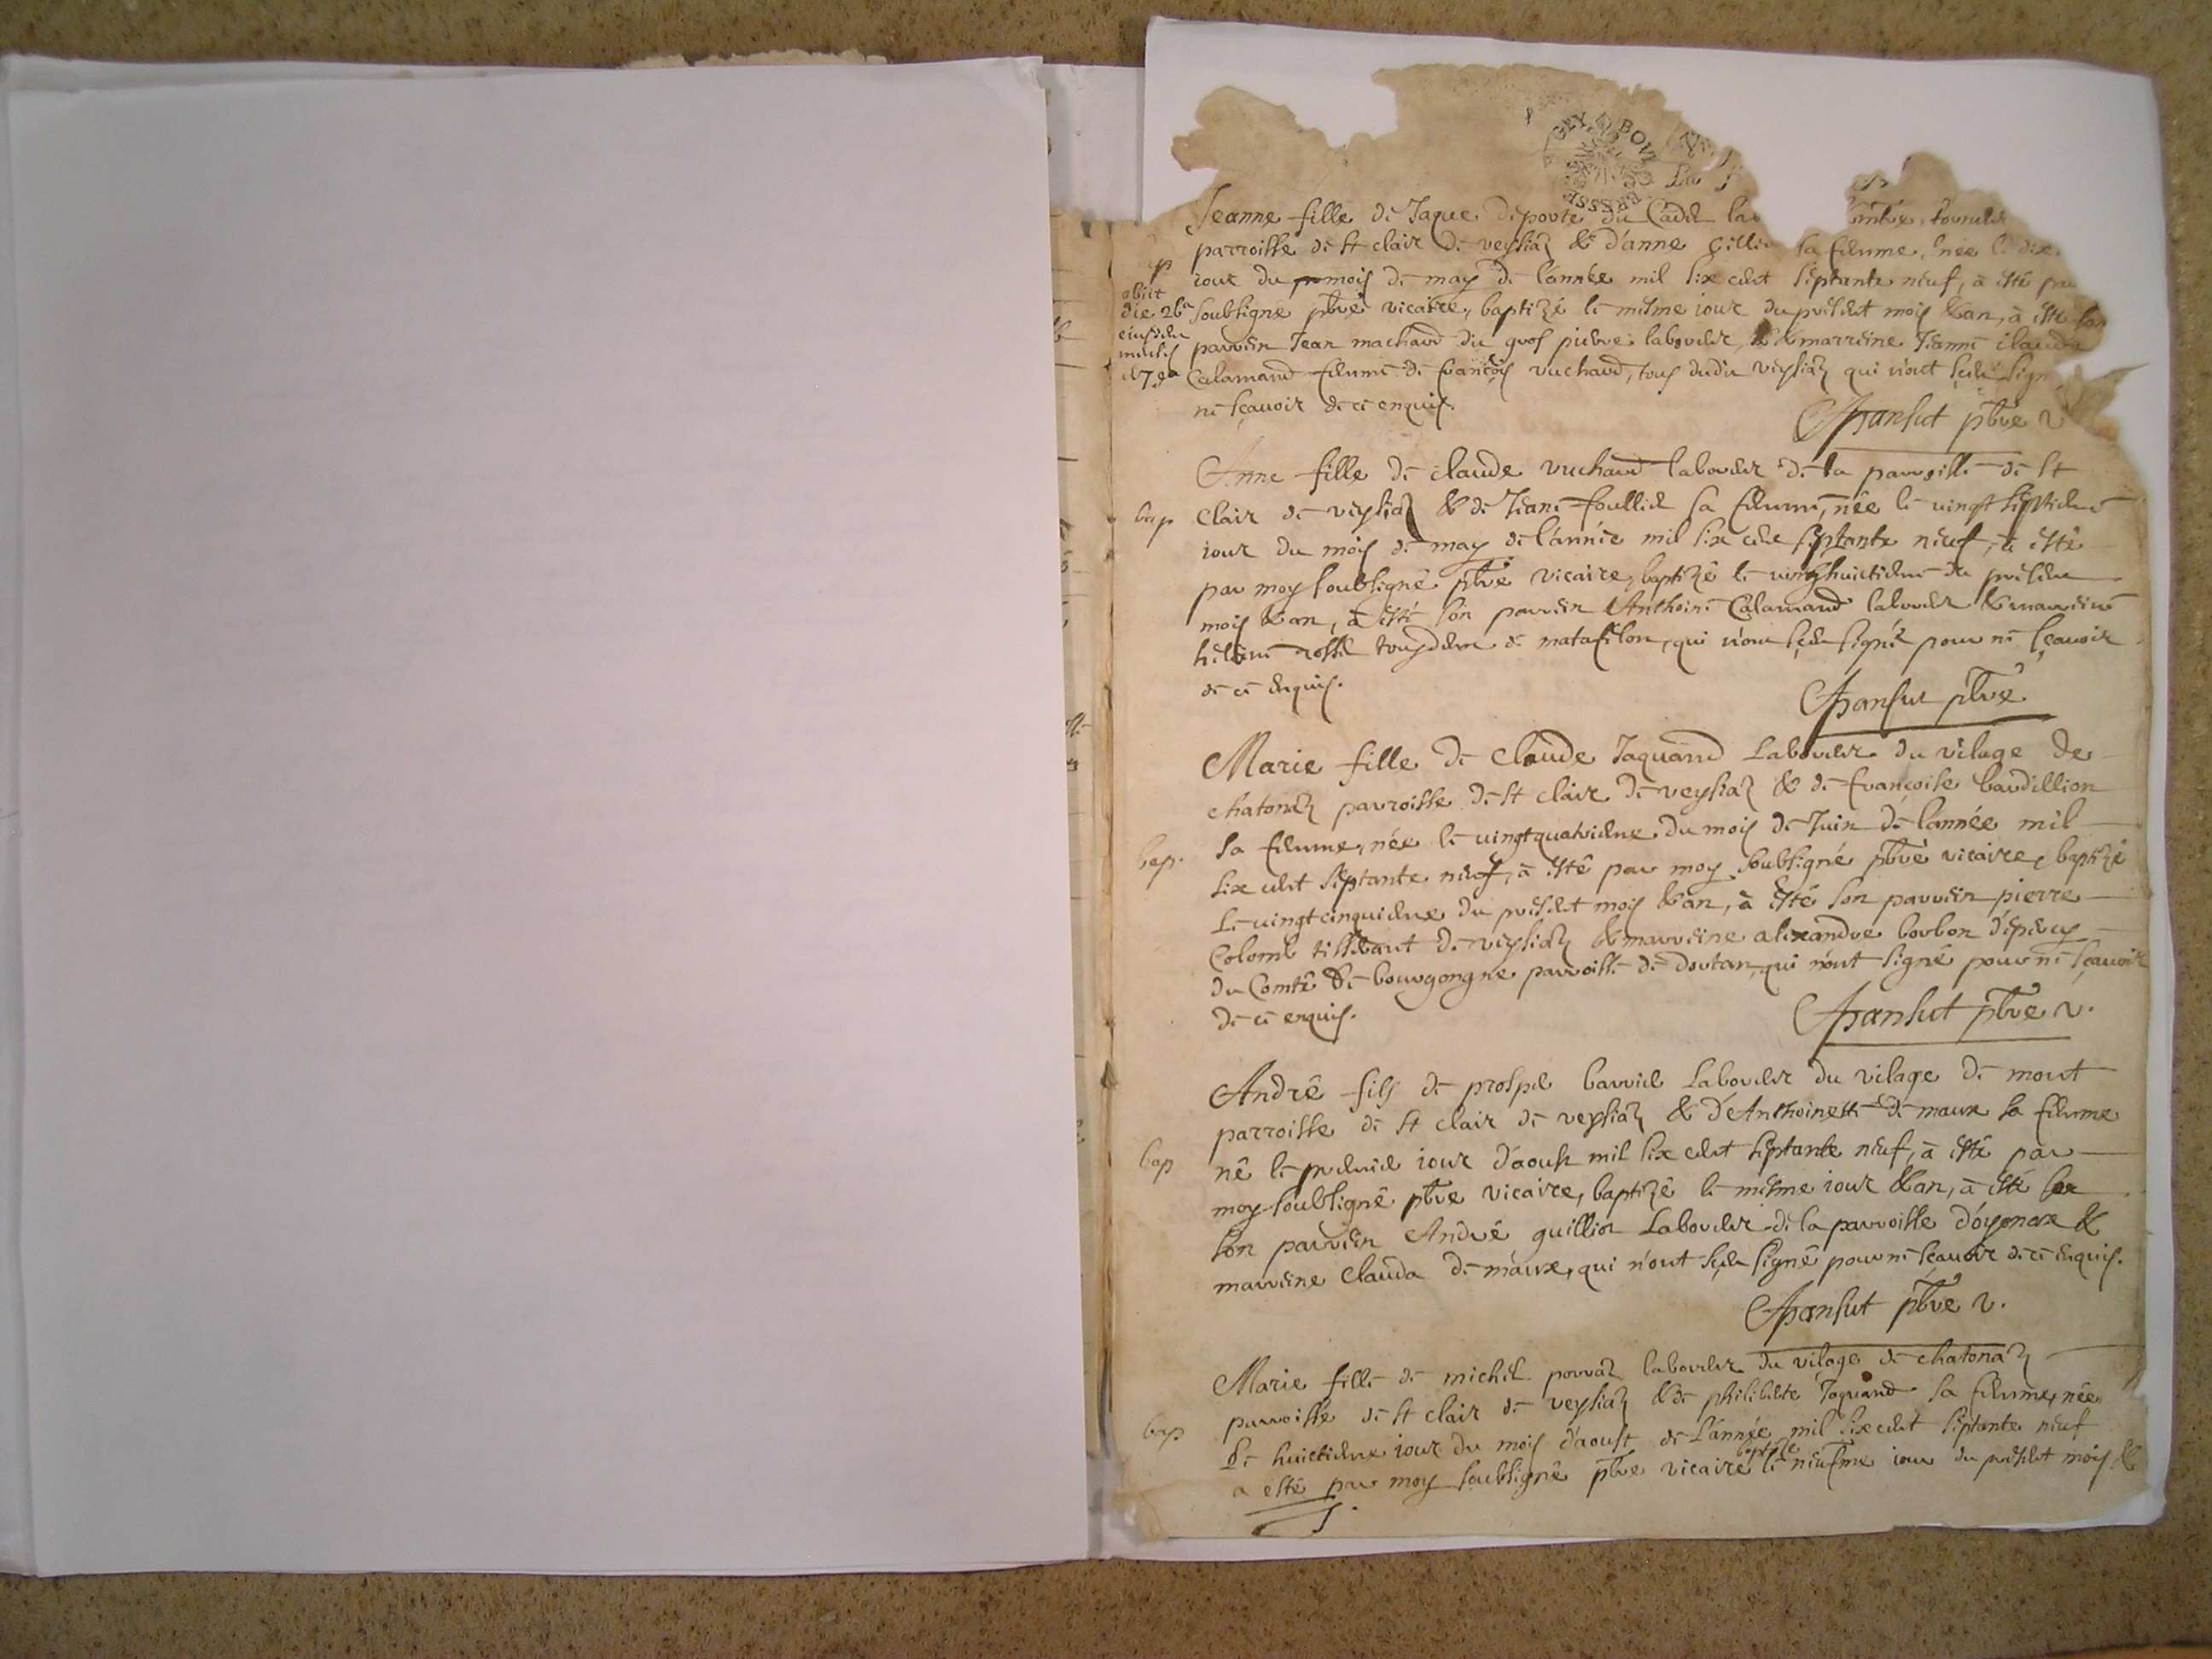 GEX BOU
BRESSE
La
Jeanne fille de Jaque deporte du Cadet lab
parroisse de st clair de veysiaz & d'anne sa femme, née le dix
iour du mois de may de l'année mil six cent septante neuf, a esté par
soubsigné pbre vicaire, baptizé le mesme iour du present mois & an, a esté son
parrein Jean machard du gros pierre laboureur, & marreine Jeanne clauda
Calamand femme de françois vuchard, tous dudit veysiaz qui n'ont sceu sign
ne sçavoir de ce enquis.
obiit
die 26a
eiusdem
mensis
Hansut pbre v
Anne fille de claude vuchard laboureur de la parroisse de st
bap
clair de veysiaz & de Jeane foullier sa femme, née le vingt septieme
iour du mois de may de l'année mil six cent septante neuf, a esté
par moy soubsigné pbre vicaire, baptizé le vingthuictieme du present
mois & an, a esté son parrein Anthoine Calamand laboureur & marreine
de matafelon, qui n'ont sceu signé pour ne sçavoir
de ce enquis.
Hansut pbre
Marie fille de claude Jaquand Laboureur du vilage de
chatonaz parroisse de st clair de veysiaz & de françoise baudillion
bap.
sa femme, née le vingtquatrieme du mois de Juin de l'année mil
six cent septante neuf, a esté par moy soubsigné pbre vicaire, baptizé
Le vingtcinquieme du present mois & an, a esté son parrein pierre
Colomb tisserant de veysiaz & marreine alexandre borbon d'epercy
du Comté de bourgongne parroisse de dortan, qui n'ont signé pour ne sçavoir
de ce enquis.
Hansut pbre v.
André fils de prosper barrier Laboureur du vilage de mont
parroisse de st clair de veysiaz & d'Anthoinette de maux sa femme
bap
né le premier iour d'aoust mil six cent septante neuf, a esté par
moy soubsigné pbre vicaire, baptizé le mesme iour & an, a esté
son parrein André guillion Laboureur de la parroisse d'oyonax &
marreine clauda de maux, qui n'ont sceu signé pour ne sçavoir de ce enquis.
Hansut pbre v.
Marie fille de michel porraz laboureur du vilage de chatonaz
parroisse de st clair de veysiaz & de philiberte Jaquand sa femme, née
bap
Le huictieme iour du mois d'aoust de l'année mil six cent septante neuf
a esté par moy soubsigné pbre vicaire baptizé le neufme iour du present mois &